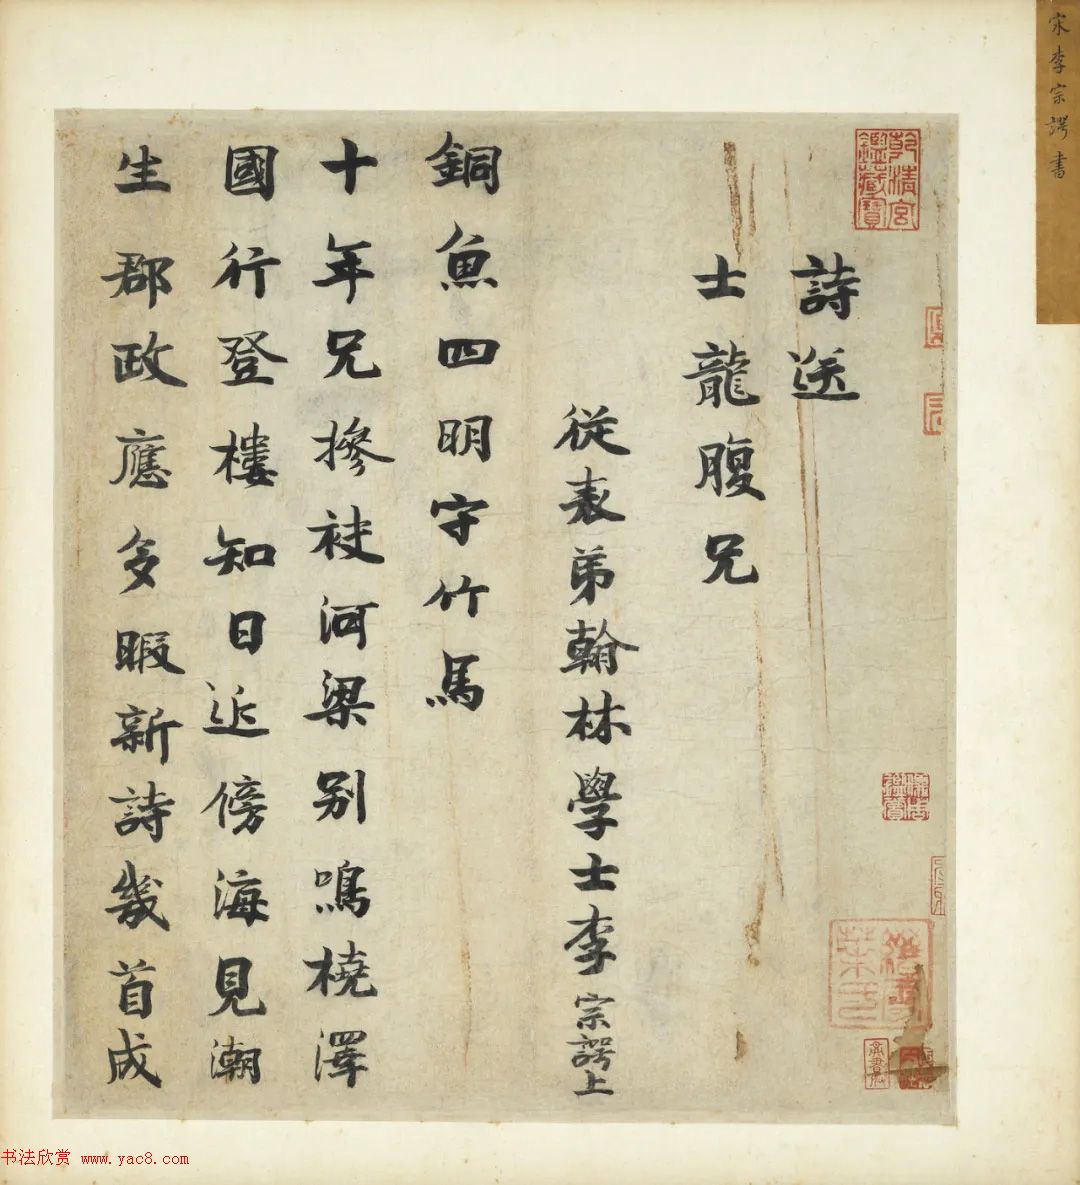 宋李宗諤書
乾清宮鑑藏寶
詩送
士龍腹兄
從表弟翰林學士李宗諤上
銅魚四明守竹馬
十年兄摻袂河梁別鳴橈澤
國行登樓知日近傍海見潮
生郡政應多暇新詩幾首成
书法欣赏 www.yac8.com